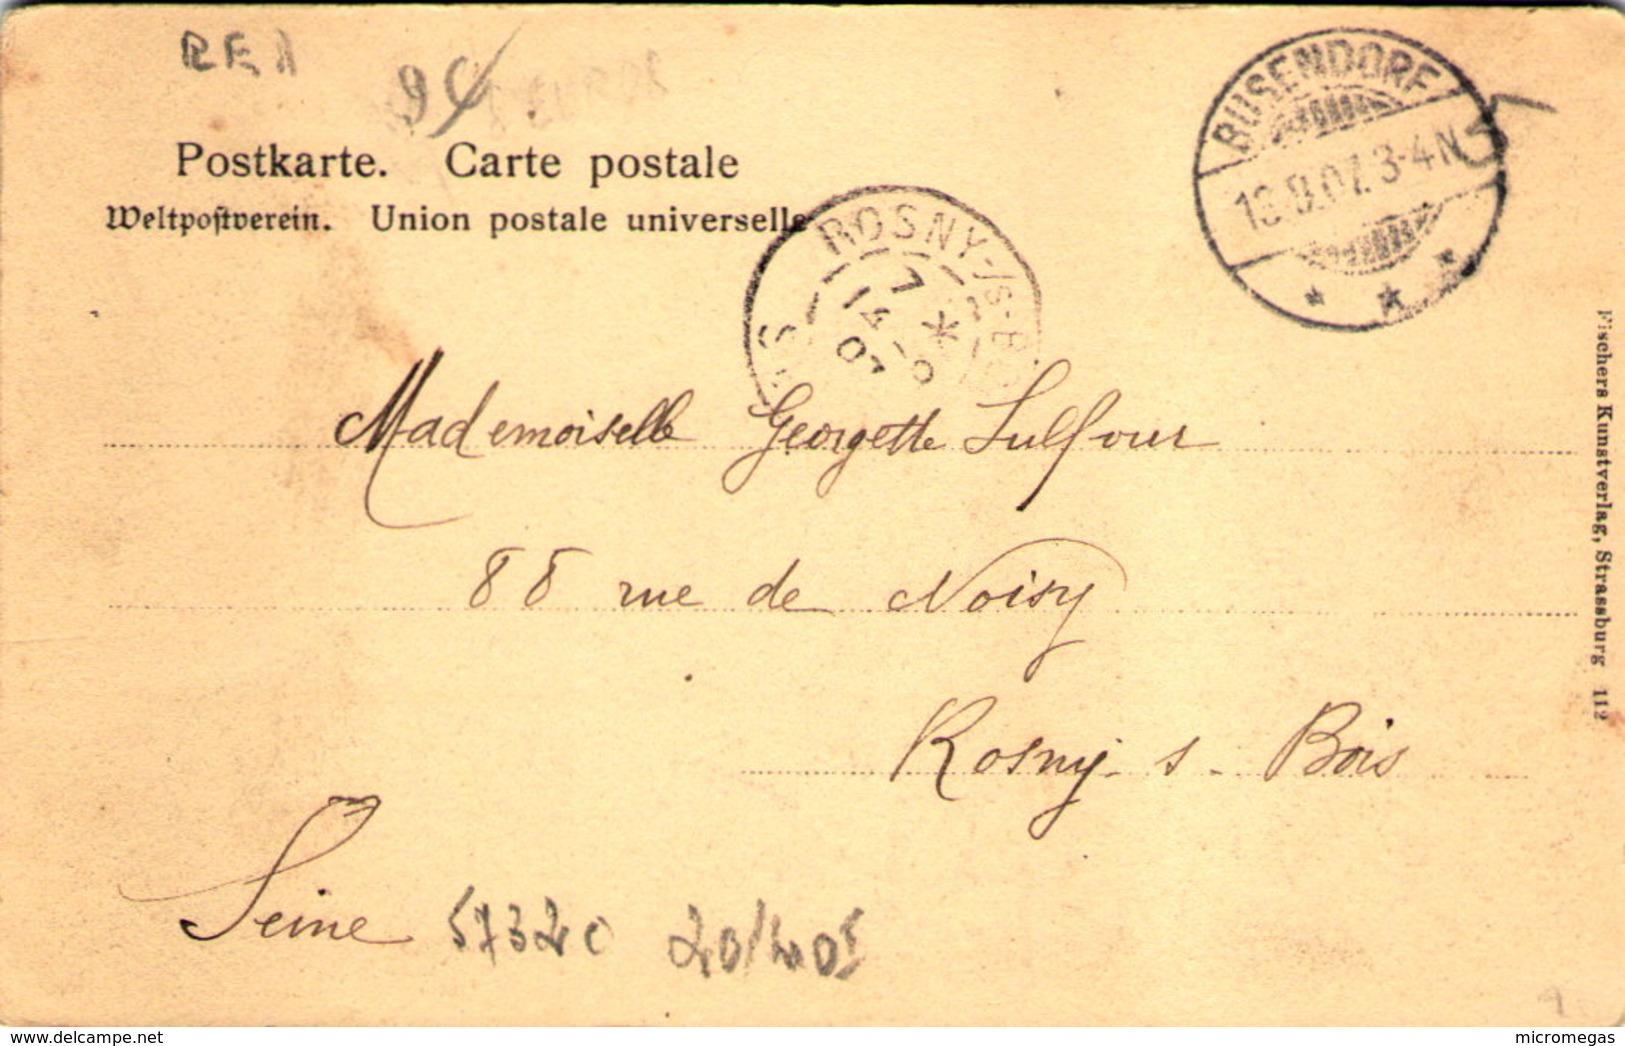 REA
94
Postkarte. Carte postale
Weltpostverein. Union postale universelle
BUSENDORF
13.9.07. 3-4N
ROSNY-/s-BOIS
7
14 - 9
07
Mademoiselle Georgette Sulfour
88 rue de Noisy
Rosny s. Bois
Seine
57320
Fischers Kunstverlag, Strassburg 112
www.delcampe.net
micromegas